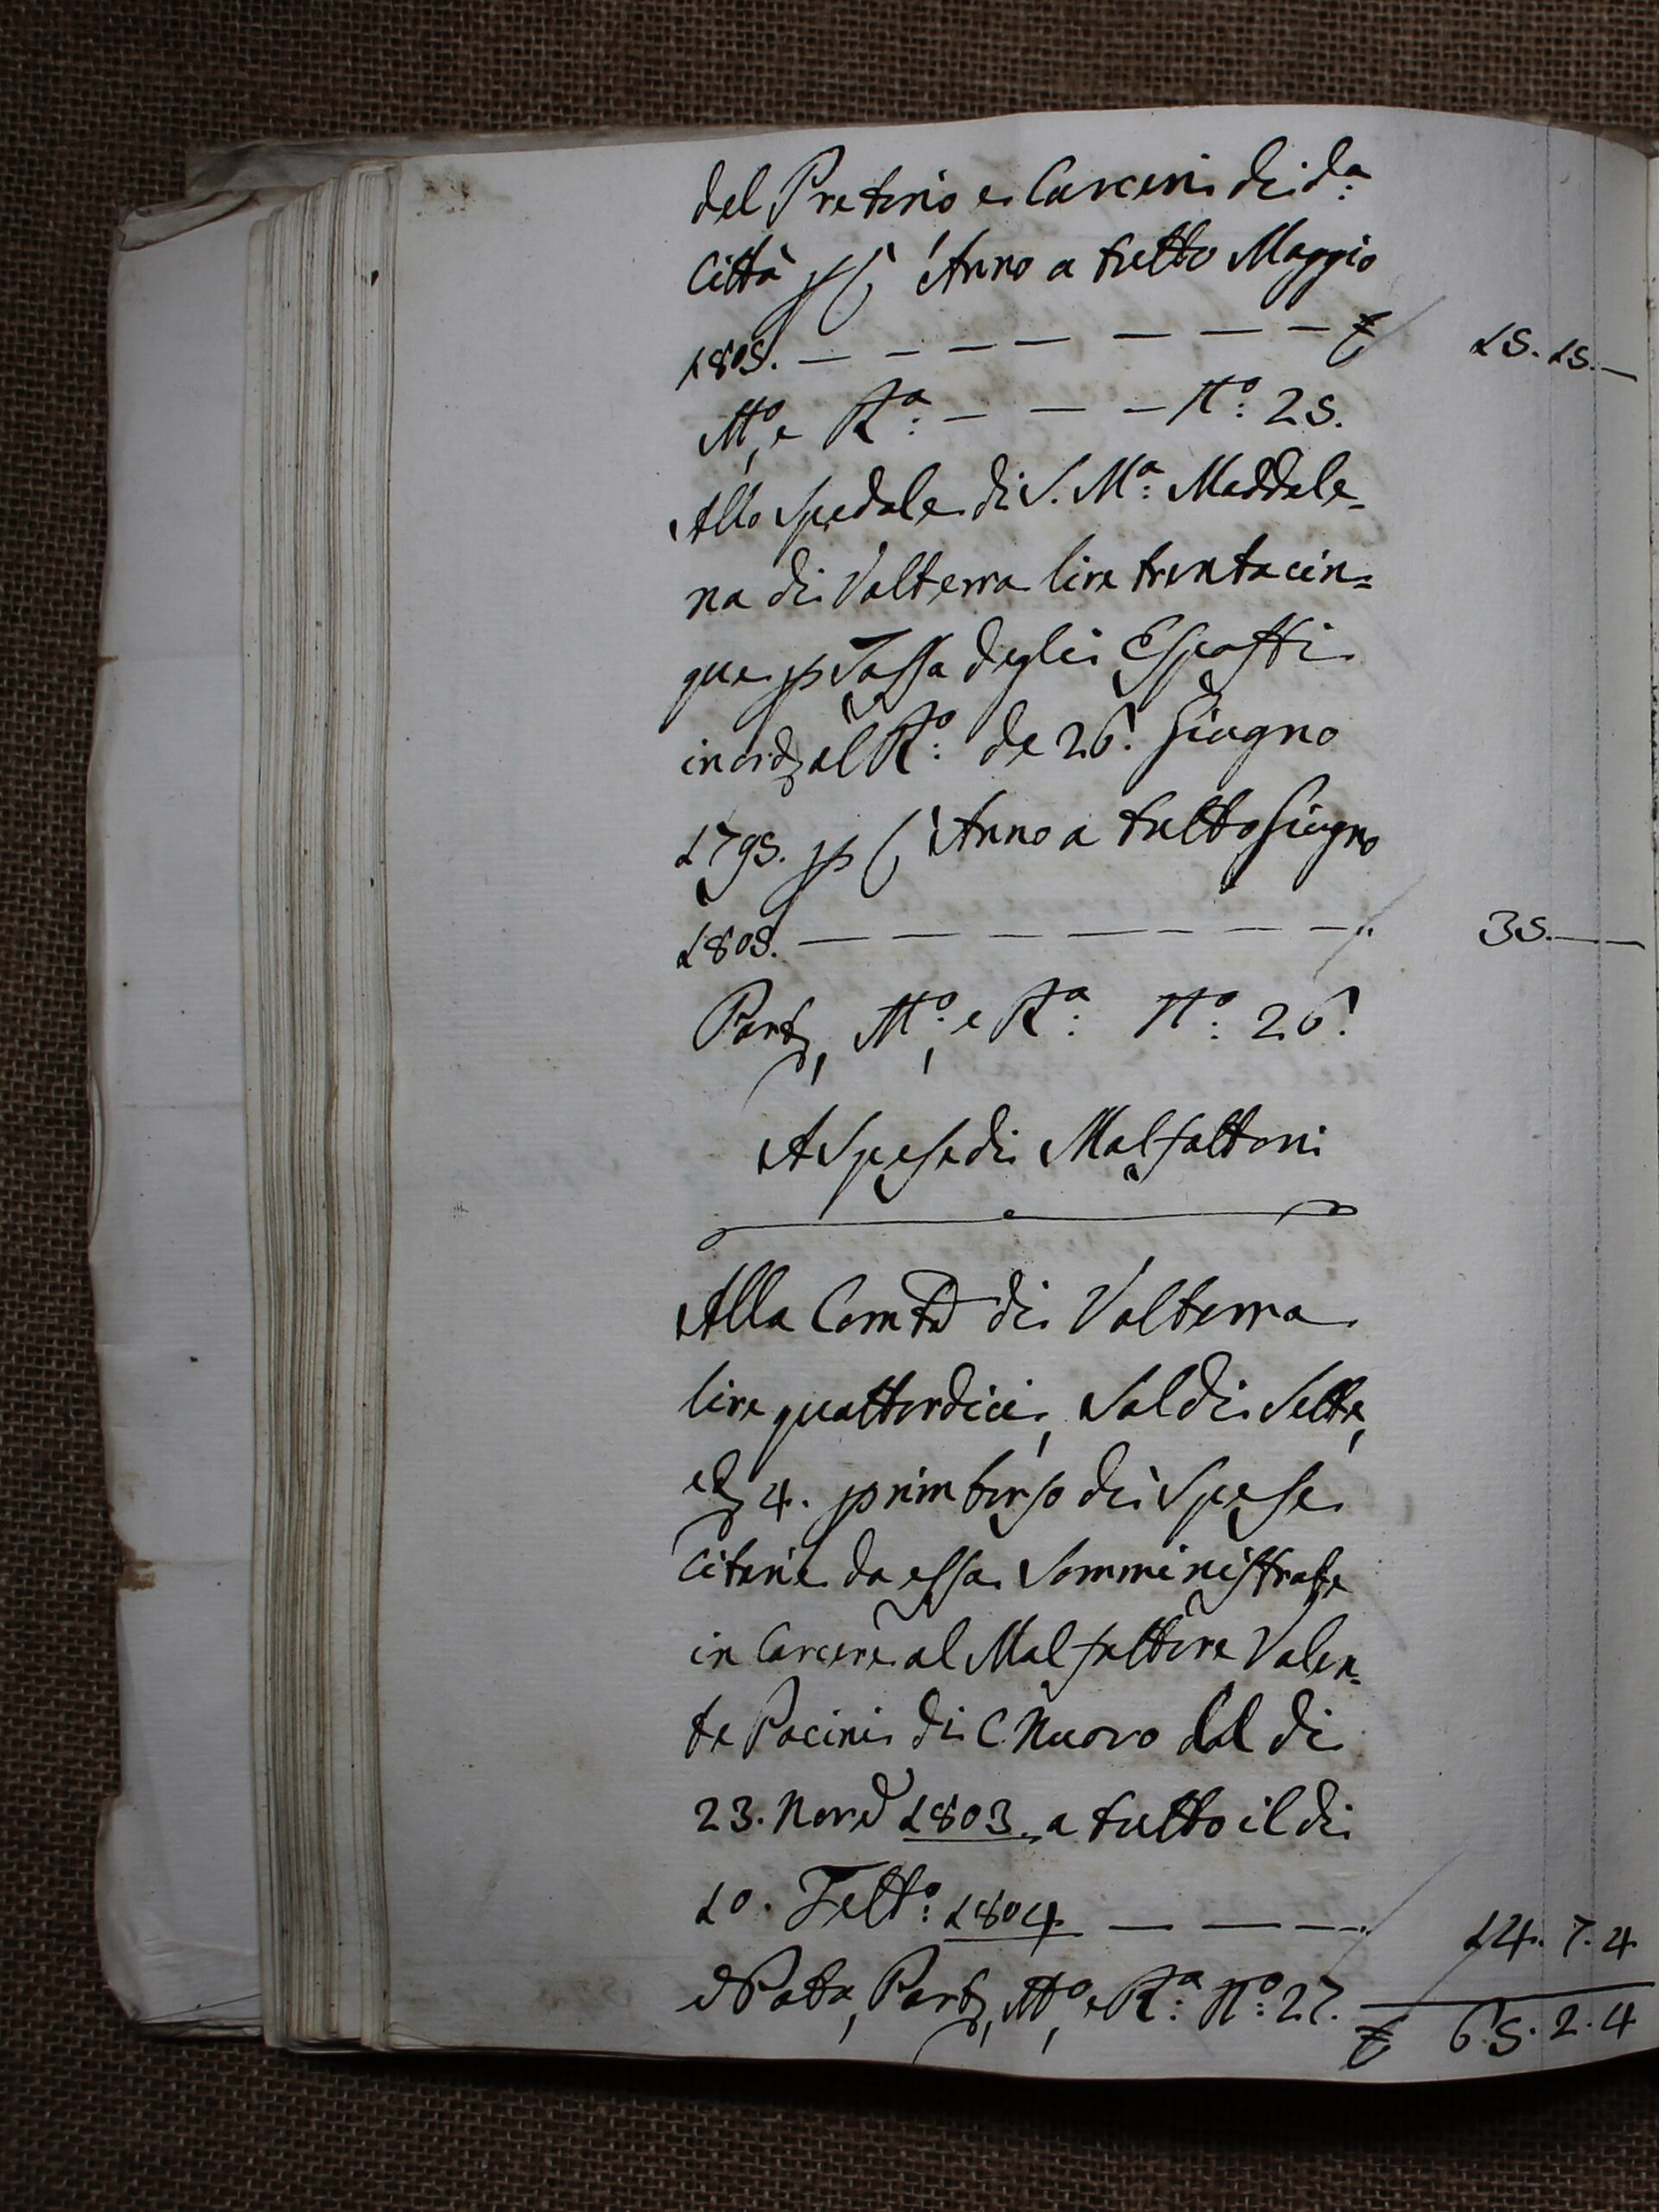 del Pretorio e Carceri di d.a
Città p l'Anno a tutto Maggio
1805. — — — — — — — £ 15. 15. —
M.o e R.a — — — N.o 25.
Allo Spedale di S. M.a Maddale=
na di Volterra lire trentacin=
que p Tassa degli Esposti
in ord al R.o de 26. Giugno
1795. p l'Anno a tutto Giugno
1805. — — — — — — — " 35. —
Part, M.o e R.a N.o 26.
A Spese di Malfattori
Alla Comtà di Volterra
lire quattordici, Soldi Sette,
e d 4. p rimborso di Spese
Citarie da essa Somministrate
in Carcere al Malfattore Valen=
te Pacini di C. Nuovo dal dì
23. Nov 1803. a tutto il dì
10. Febb.o 1804 — — — " 14. 7. 4
Nota, Part, M.o e R.a N.o 27. £ 65. 2. 4